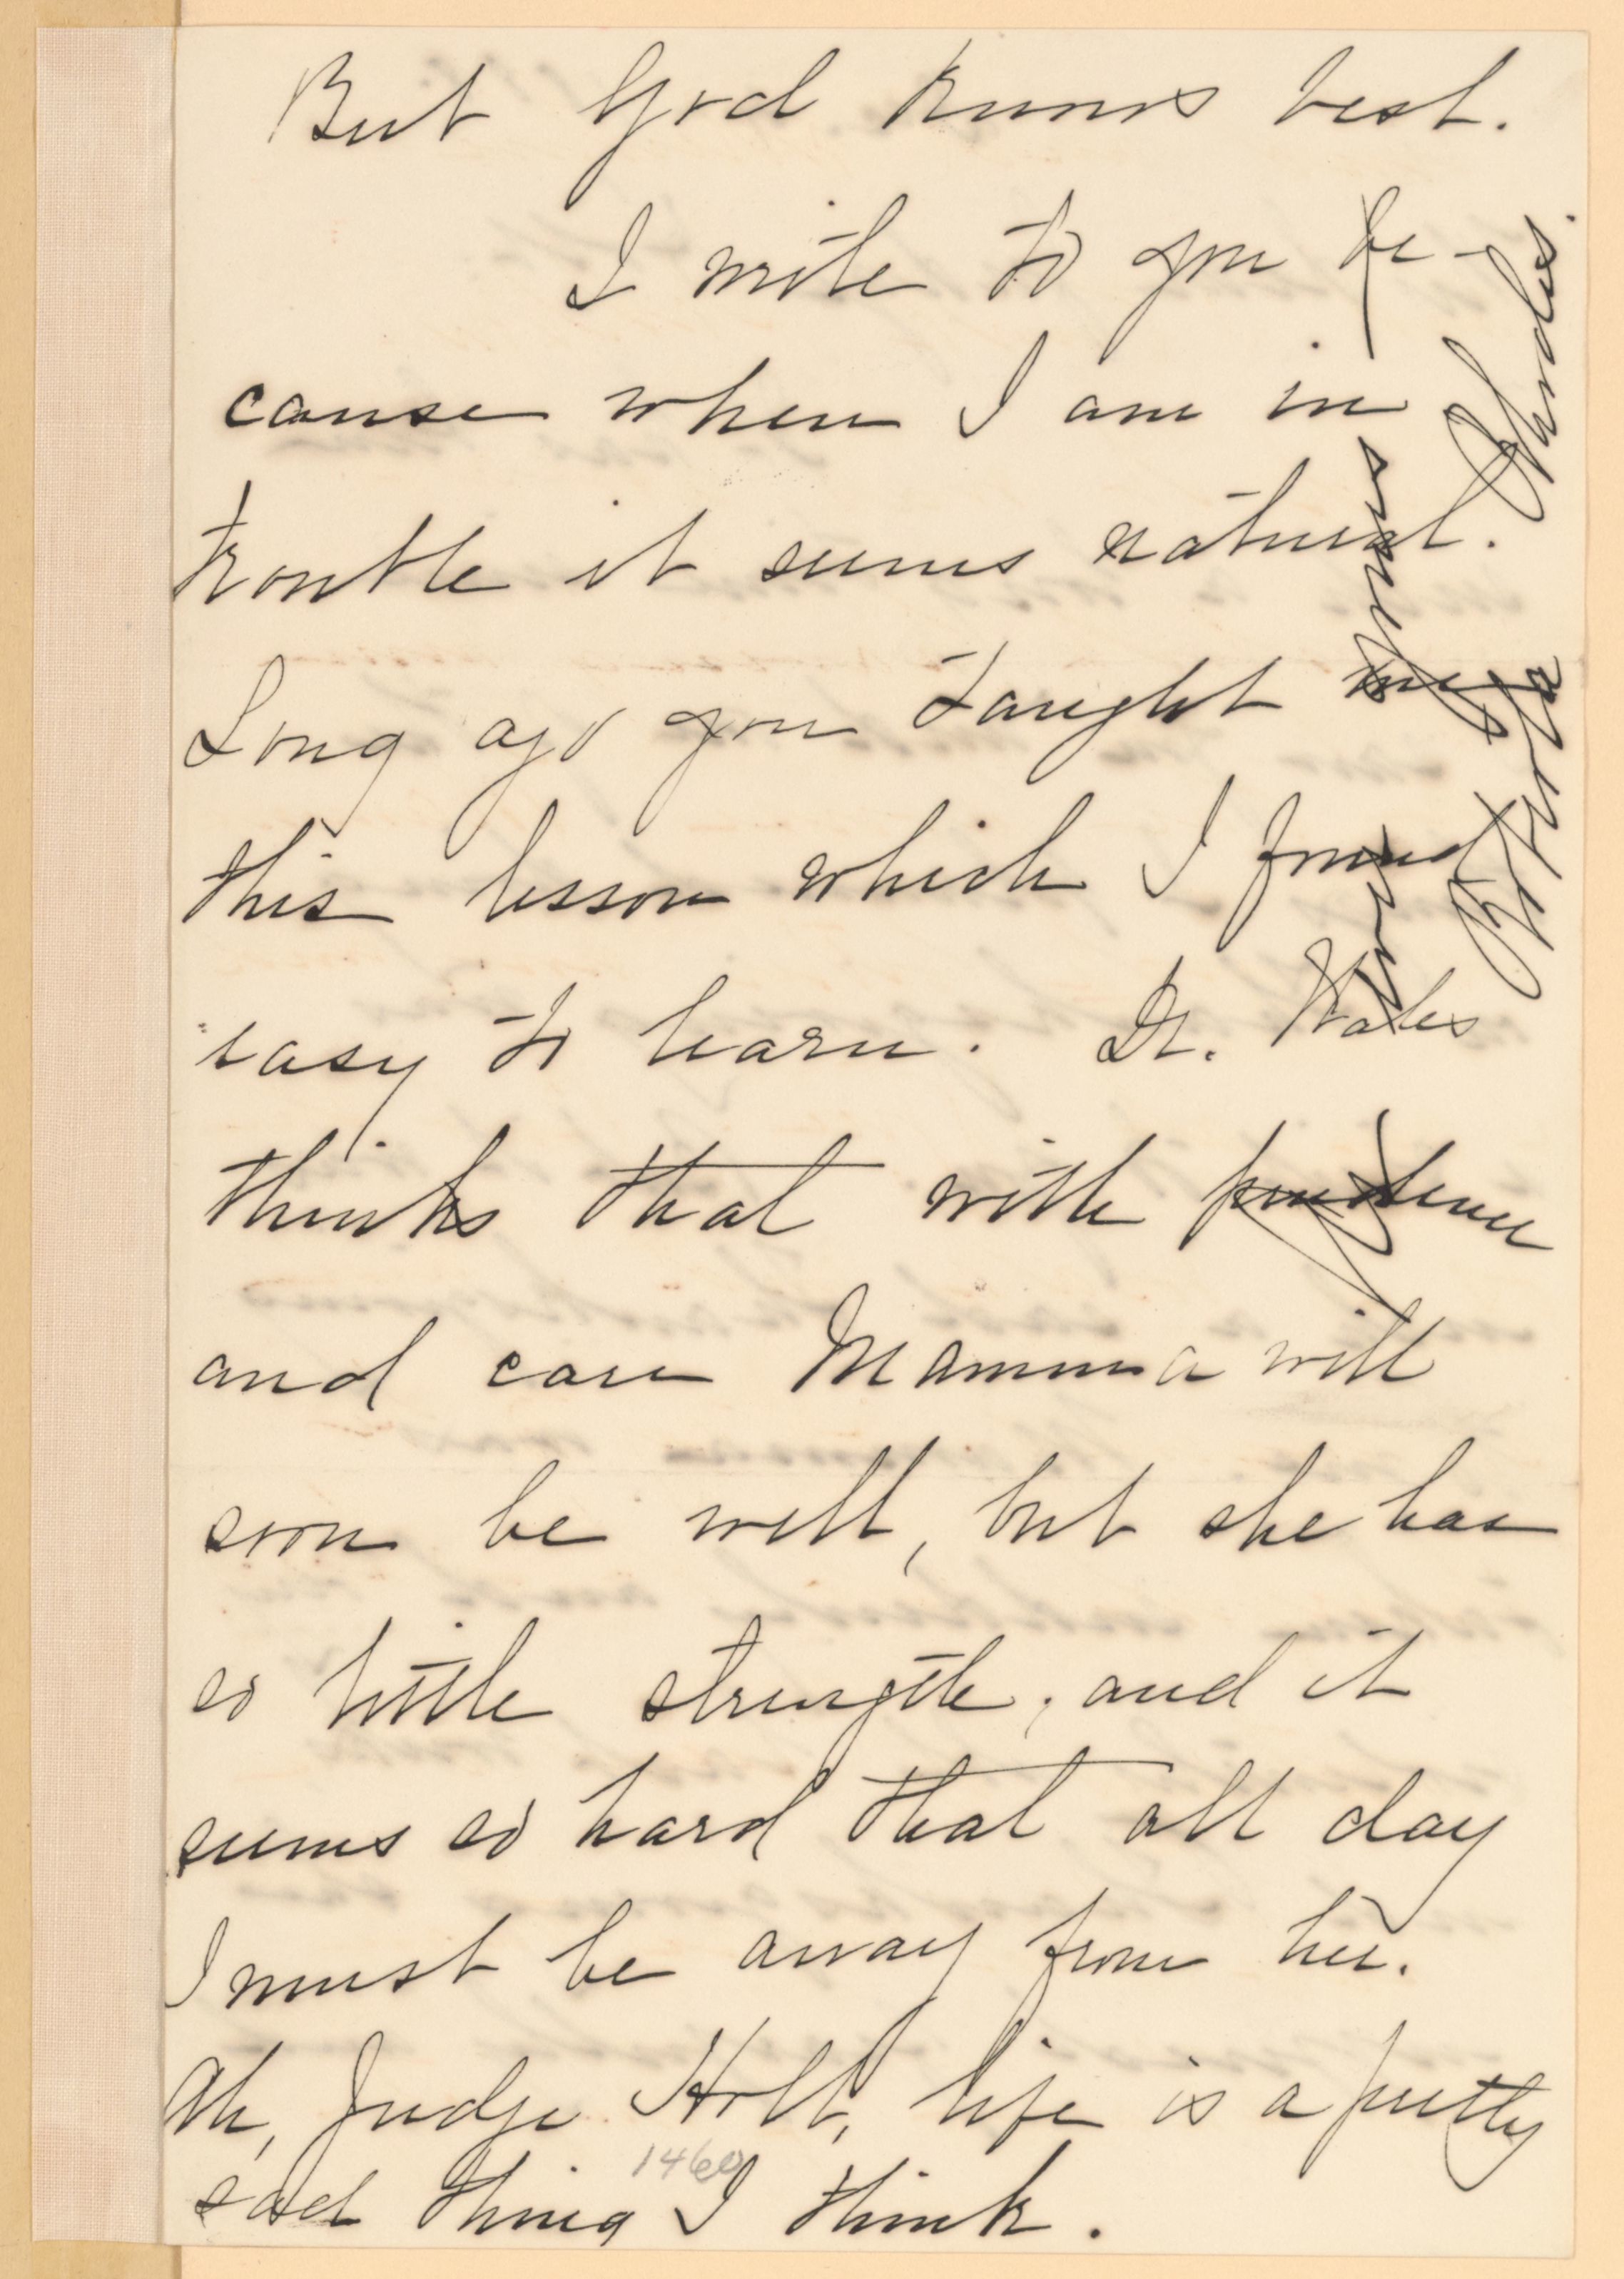 But God knows best.
I write to you be-
cause when I am in
trouble it seems natural.
Long ago you taught me
this lesson which I found
easy to learn. Dr. Wales
thinks that with prudence
and care Mamma will
soon be well, but she has
so little strength, and it
seems so hard that all day
I must be away from her.
Ah, Judge Holt, life is a pretty
sad thing I think.
1460
Ever yours